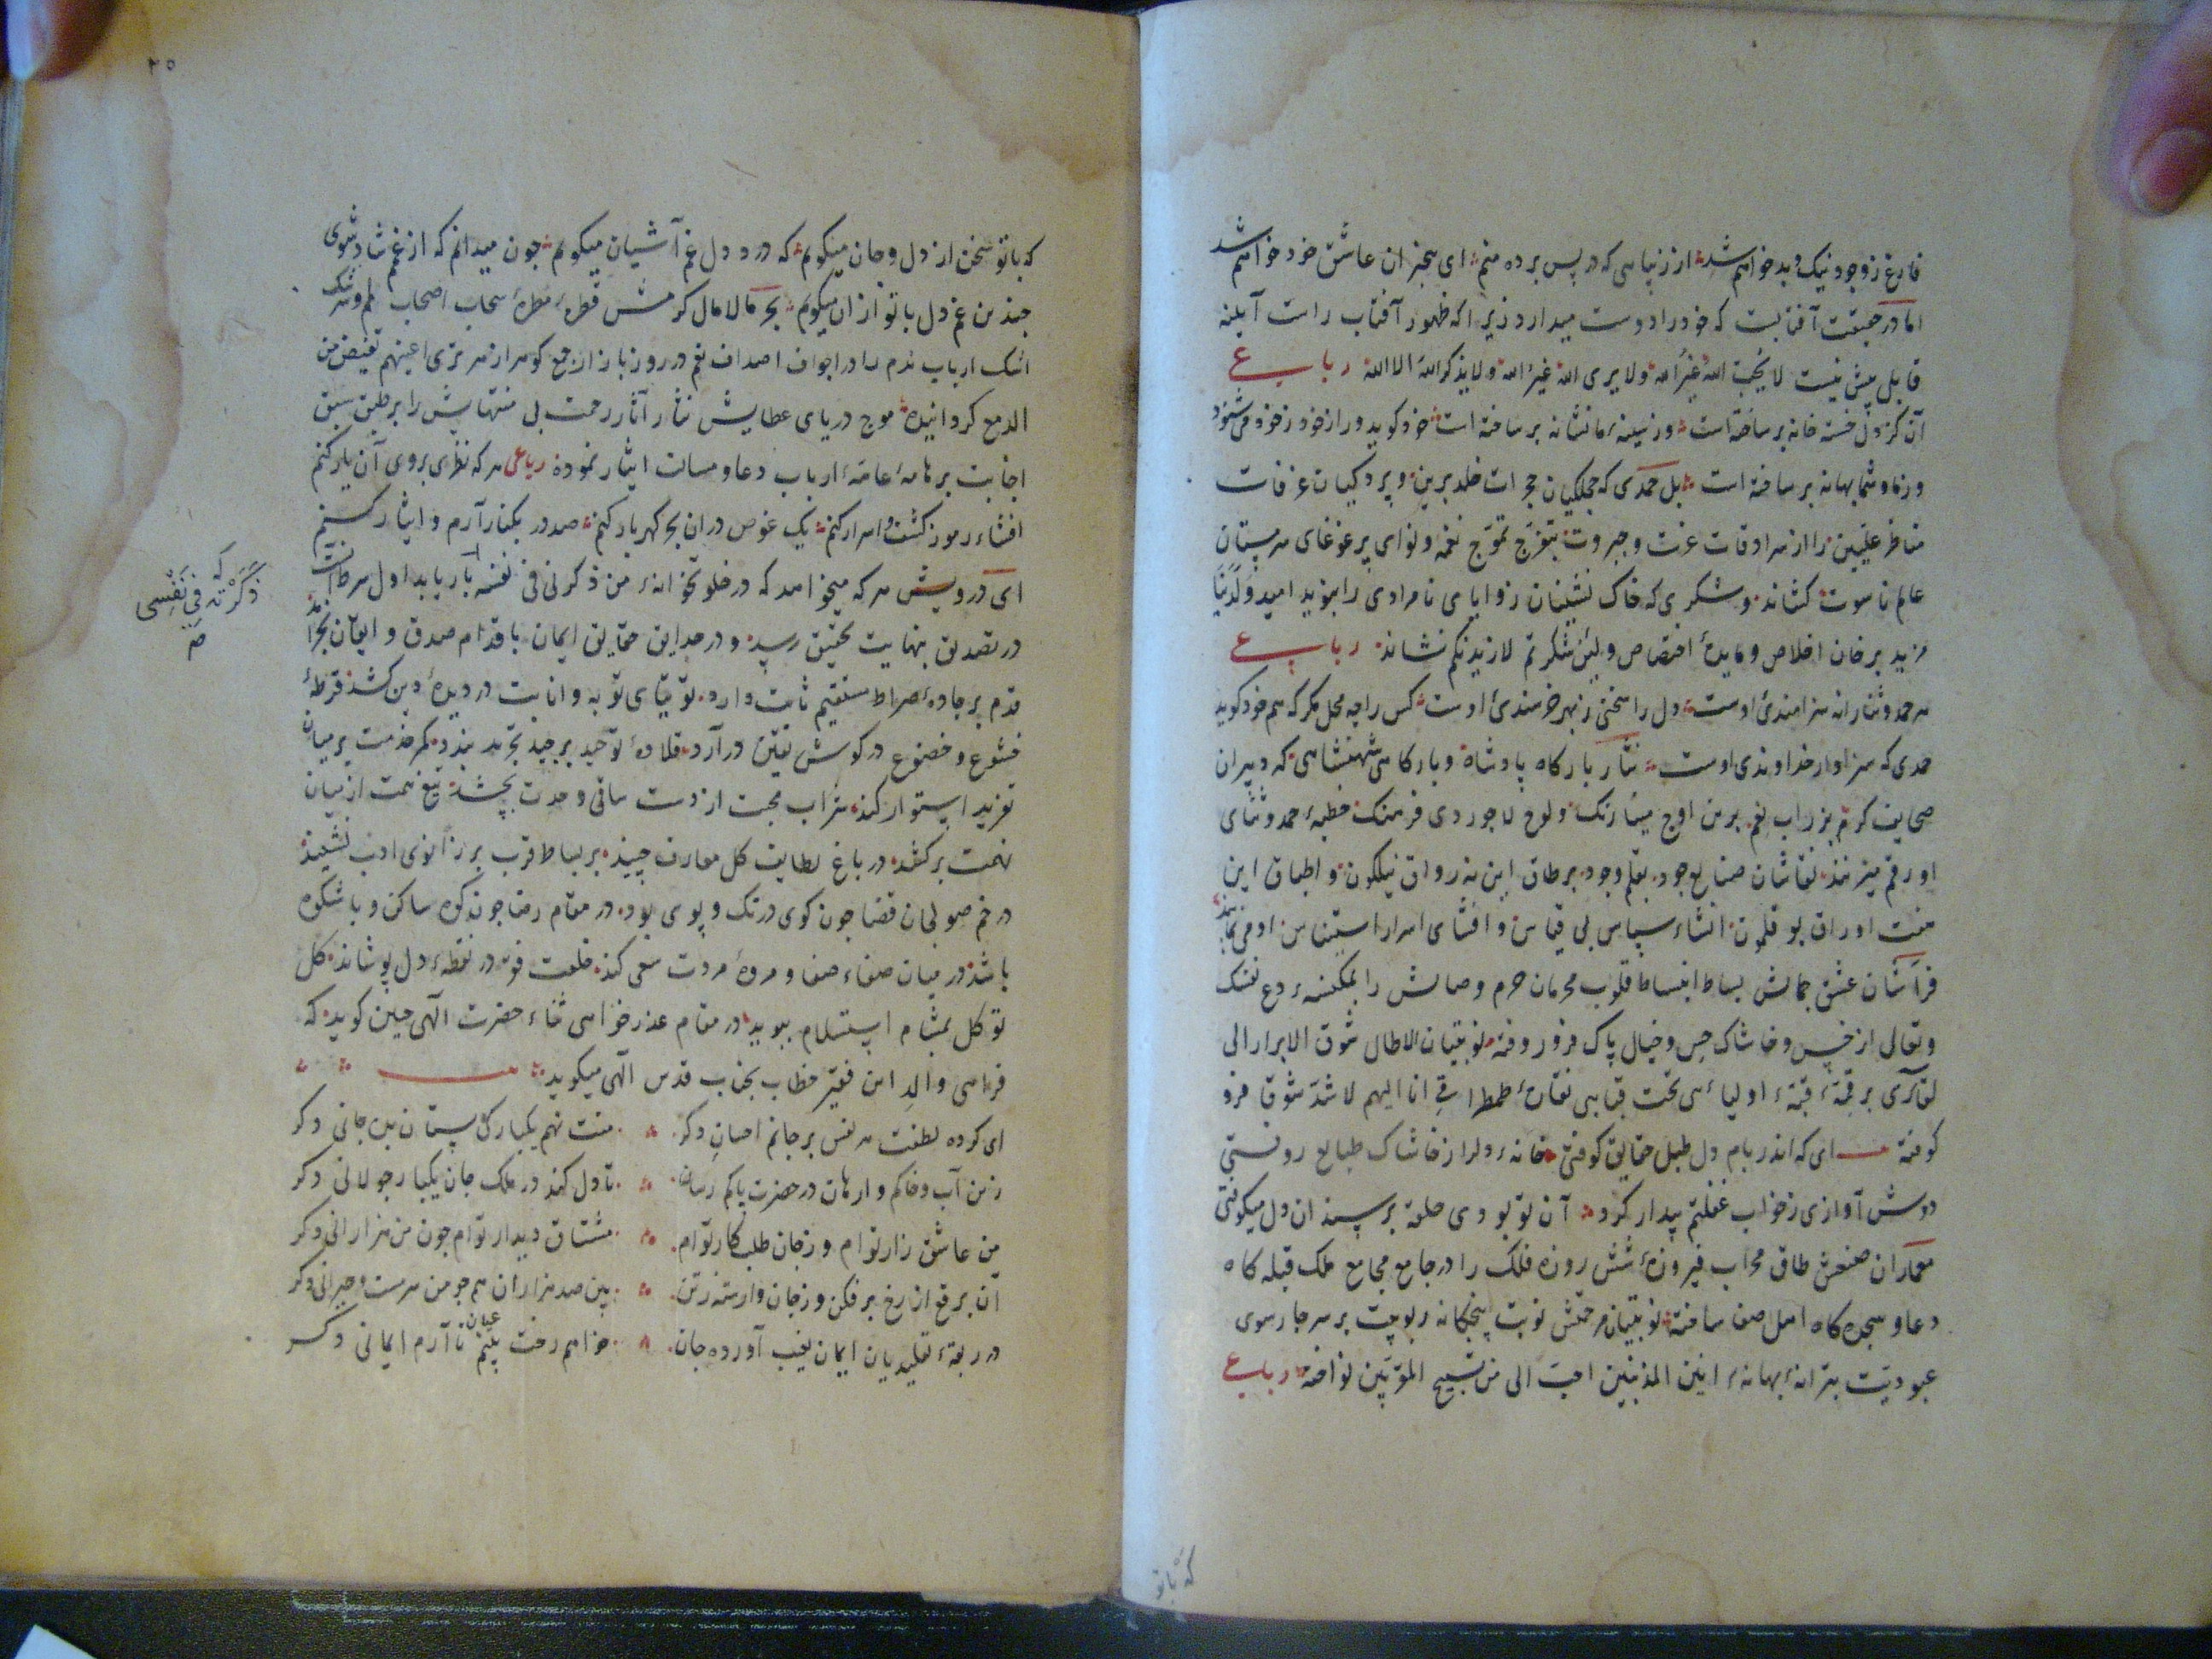 فارغ ز وجود نیک و بد خواهم شد از زیبایی که در پس پرده منم ای بیخبران عاشق خود خواهم شد
اما در حقیقت آفتابست که خود را دوست میدارد زیرا که ظهور آفتاب راست آینه
قابل بیش نیست لا یحب الله غیر الله ولا یری الله غیر الله ولا یذکر الله الا الله رباعی
آن کز دل خسته خانه بر ساخته است وز سینه ما نشانه بر ساخته است خود گوید و راز خود ز خود می شنود
وز ما و شما بهانه بر ساخته است بل حمدی که حجلگیان حجرات خلد برین و پردگیان غرفات
مناظر علیین را از سرادقات عزت و جبروت بتفرج تموج نغمه و نوای پر غوغای سرمستان
عالم ناسوت کشاند و شکری که خاک نشینان زوایای نامرادی را بنوید امید ولدینا
مزید بر خان اخلاص و مایدهٔ اختصاص ولئن شکرتم لازیدنکم نشاند رباعی
هر حمد و ثنا را نه سزامندئ اوست دل را سخنی ز بهر خرسندئ اوست کس را چه محل مکر که هم خود کوید
حمدی که سزاوار خداوندی اوست نثار بارکاه پادشاه و بارکاهی شهنشاهی که دبیران
صحایف کرم بزر آب نعم برین اوج مینا رنک و لوح لاجوردی فرهنک خطبهٔ حمد و ثنای
او رقم میزنند نقاشان صنایع جود بقلم وجود بر طاق این نه رواق نیلکون و اطباق این
هفت اوراق بوقلمون انشاء سپاس بی قیاس و افشای اسرار استیناس او می نمایند
فراشان عشق جمالش بساط انبساط قلوب محرمان حرم وصالش را بمکنسهٔ دع نفسک
و تعالی از خس و خاشاک حس و خیال پاک فرو روفته نوبتیان الا طال شوق الابرار الی
لقائی بر قمهٔ قبهٔ اولیائی تحت قبابی نقارهٔ طمطراق انا الیهم لاشد شوقا فرو
کوفته ای که اندر بام دل طبل حقایق کوفتی خانهٔ دل را ز خاشاک طبایع روفتی
دوش آوازی ز خواب غفلتم بیدار کرد آن تو بودی حلقه بر سندان دل میکوفتی
معماران صنعش طاق محراب فیروزهٔ شش روزه فلک را در جامع مجامع ملک قبله کاه
دعا و سجده کاه اهل صفا ساخته نوبتیان رحمتش نوبت پنجکانه ربوبیت بر سر چارسوی
عبودیت بترانهٔ بهانهٔ انین المذنبین احب الی من تسبیح المقربین نواخته رباعی
که با تو
۲۵
که با تو سخن از دل و جان میکویم که درد دل غم آشیان میکویم چون میدانم که از غمم شاد شوی
چندین غم دل با تو از ان میکویم بحر مالامال کرمش قطرهٔ مطرهٔ سحاب اصحاب الم و سرشک
اشک ارباب ندم را در اجواف اصداف نعم در روز بازار جمع کوهر از هر تری اعینهم تفیض من
الدمع کردانیده موج دریای عطایش نثار آثار رحمت بی منتهاش را بر طبق سبق
اجابت بر هامهٔ عامهٔ ارباب دعا و مسالت ایثار نموده رباعی هر که نظری بروی آن یار کنم
افشاء رموز کشف و اسرار کنم یک غوص در ان بحر کهربار کنم صد در بکنار آرم و ایثار کنم
ای درویش هر که میخواهد که در خلوتخانهٔ من ذکرنی فی نفسه بار یابد اول
در تصدیق بنهایت تحقیق رسید و در حدایق حقایق ایمان باقدام صدق و ایقان
قدم بر جادهٔ صراط مستقیم ثابت دارد توتیای توبه و انابت در دیدهٔ دین کشد قرطهٔ
خشوع و خضوع در کوش یقین درآرد قلادهٔ توحید بر جید تجرید بندد کمر خدمت بر میان
تفرید استوار کند شراب محبت از دست ساقی وحدت بچشد تیغ همت از نیان
نهمت برکشد در باغ لطایف کل معارف چیند بر بساط قرب بر زانوی ادب نشیند
در خم صولجان قضا چون کوی در تک و پوی بود در مقام رضا چون کوه ساکن و با شکوه
باشد در میان صفاء صفا و مروهٔ مروت سعی کند خلعت فوز در نقطهٔ دل پوشاند کل
توکل بمشام استسلام ببوید در مقام عذر خواهی ثناء حضرت الهی چنین کوید که
فراهی والد این فقیر خطاب بجناب قدس الهی میکوید
ای کرده لطفت هر نفس بر جانم احسان دکر منت نهم یکبارکی بستان ز من جانی دکر
زین آب و خاکم وارهان در حضرت پاکم رسان تا دل کند در ملک جان یکبار جولانی دکر
من عاشق زار توام وز جان طلبکار توام مشتاق دیدار توام چون من هزارانی دکر
آن برقع از رخ برفکن وز جان وارسته ز تن بین صد هزاران همچو من سرمست و حیرانی دکر
در ربقهٔ تقلیدیان ایمان بغیب آورده جان خواهم رخت بینم عیان تا آرم ایمانی دکر
که
ذکرته فی نفسی
صح